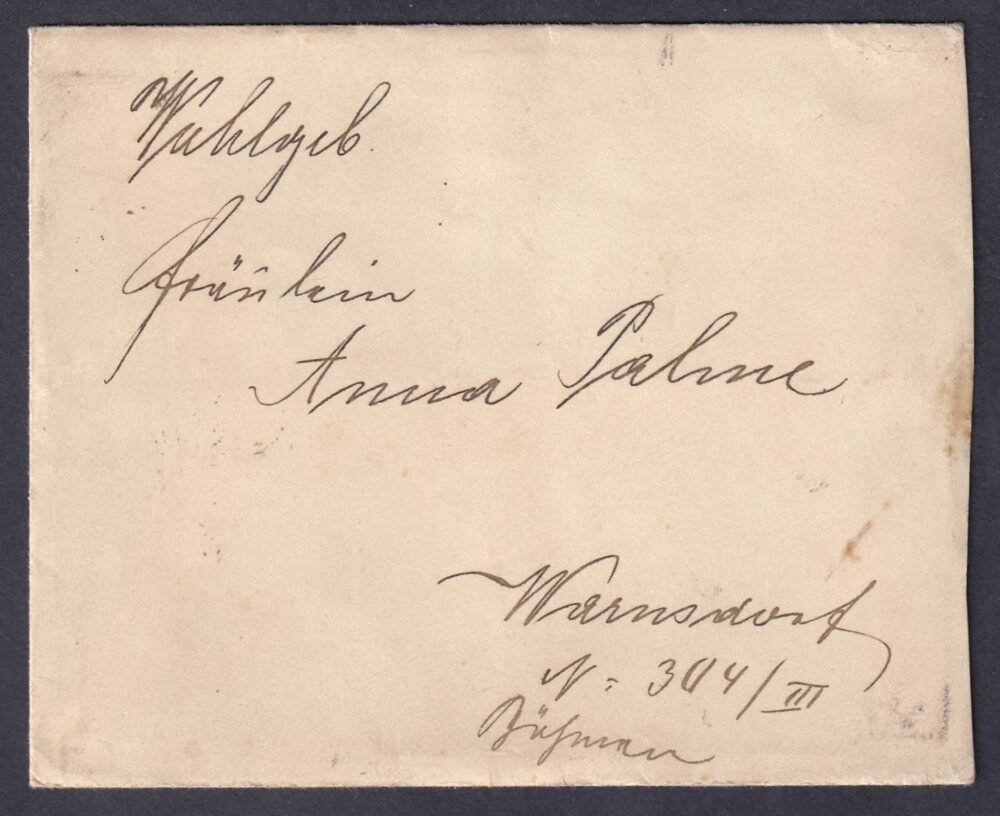 Wohlgeb.
Fräulein
Anna Palme
Warnsdorf
N: 304/III
Böhmen